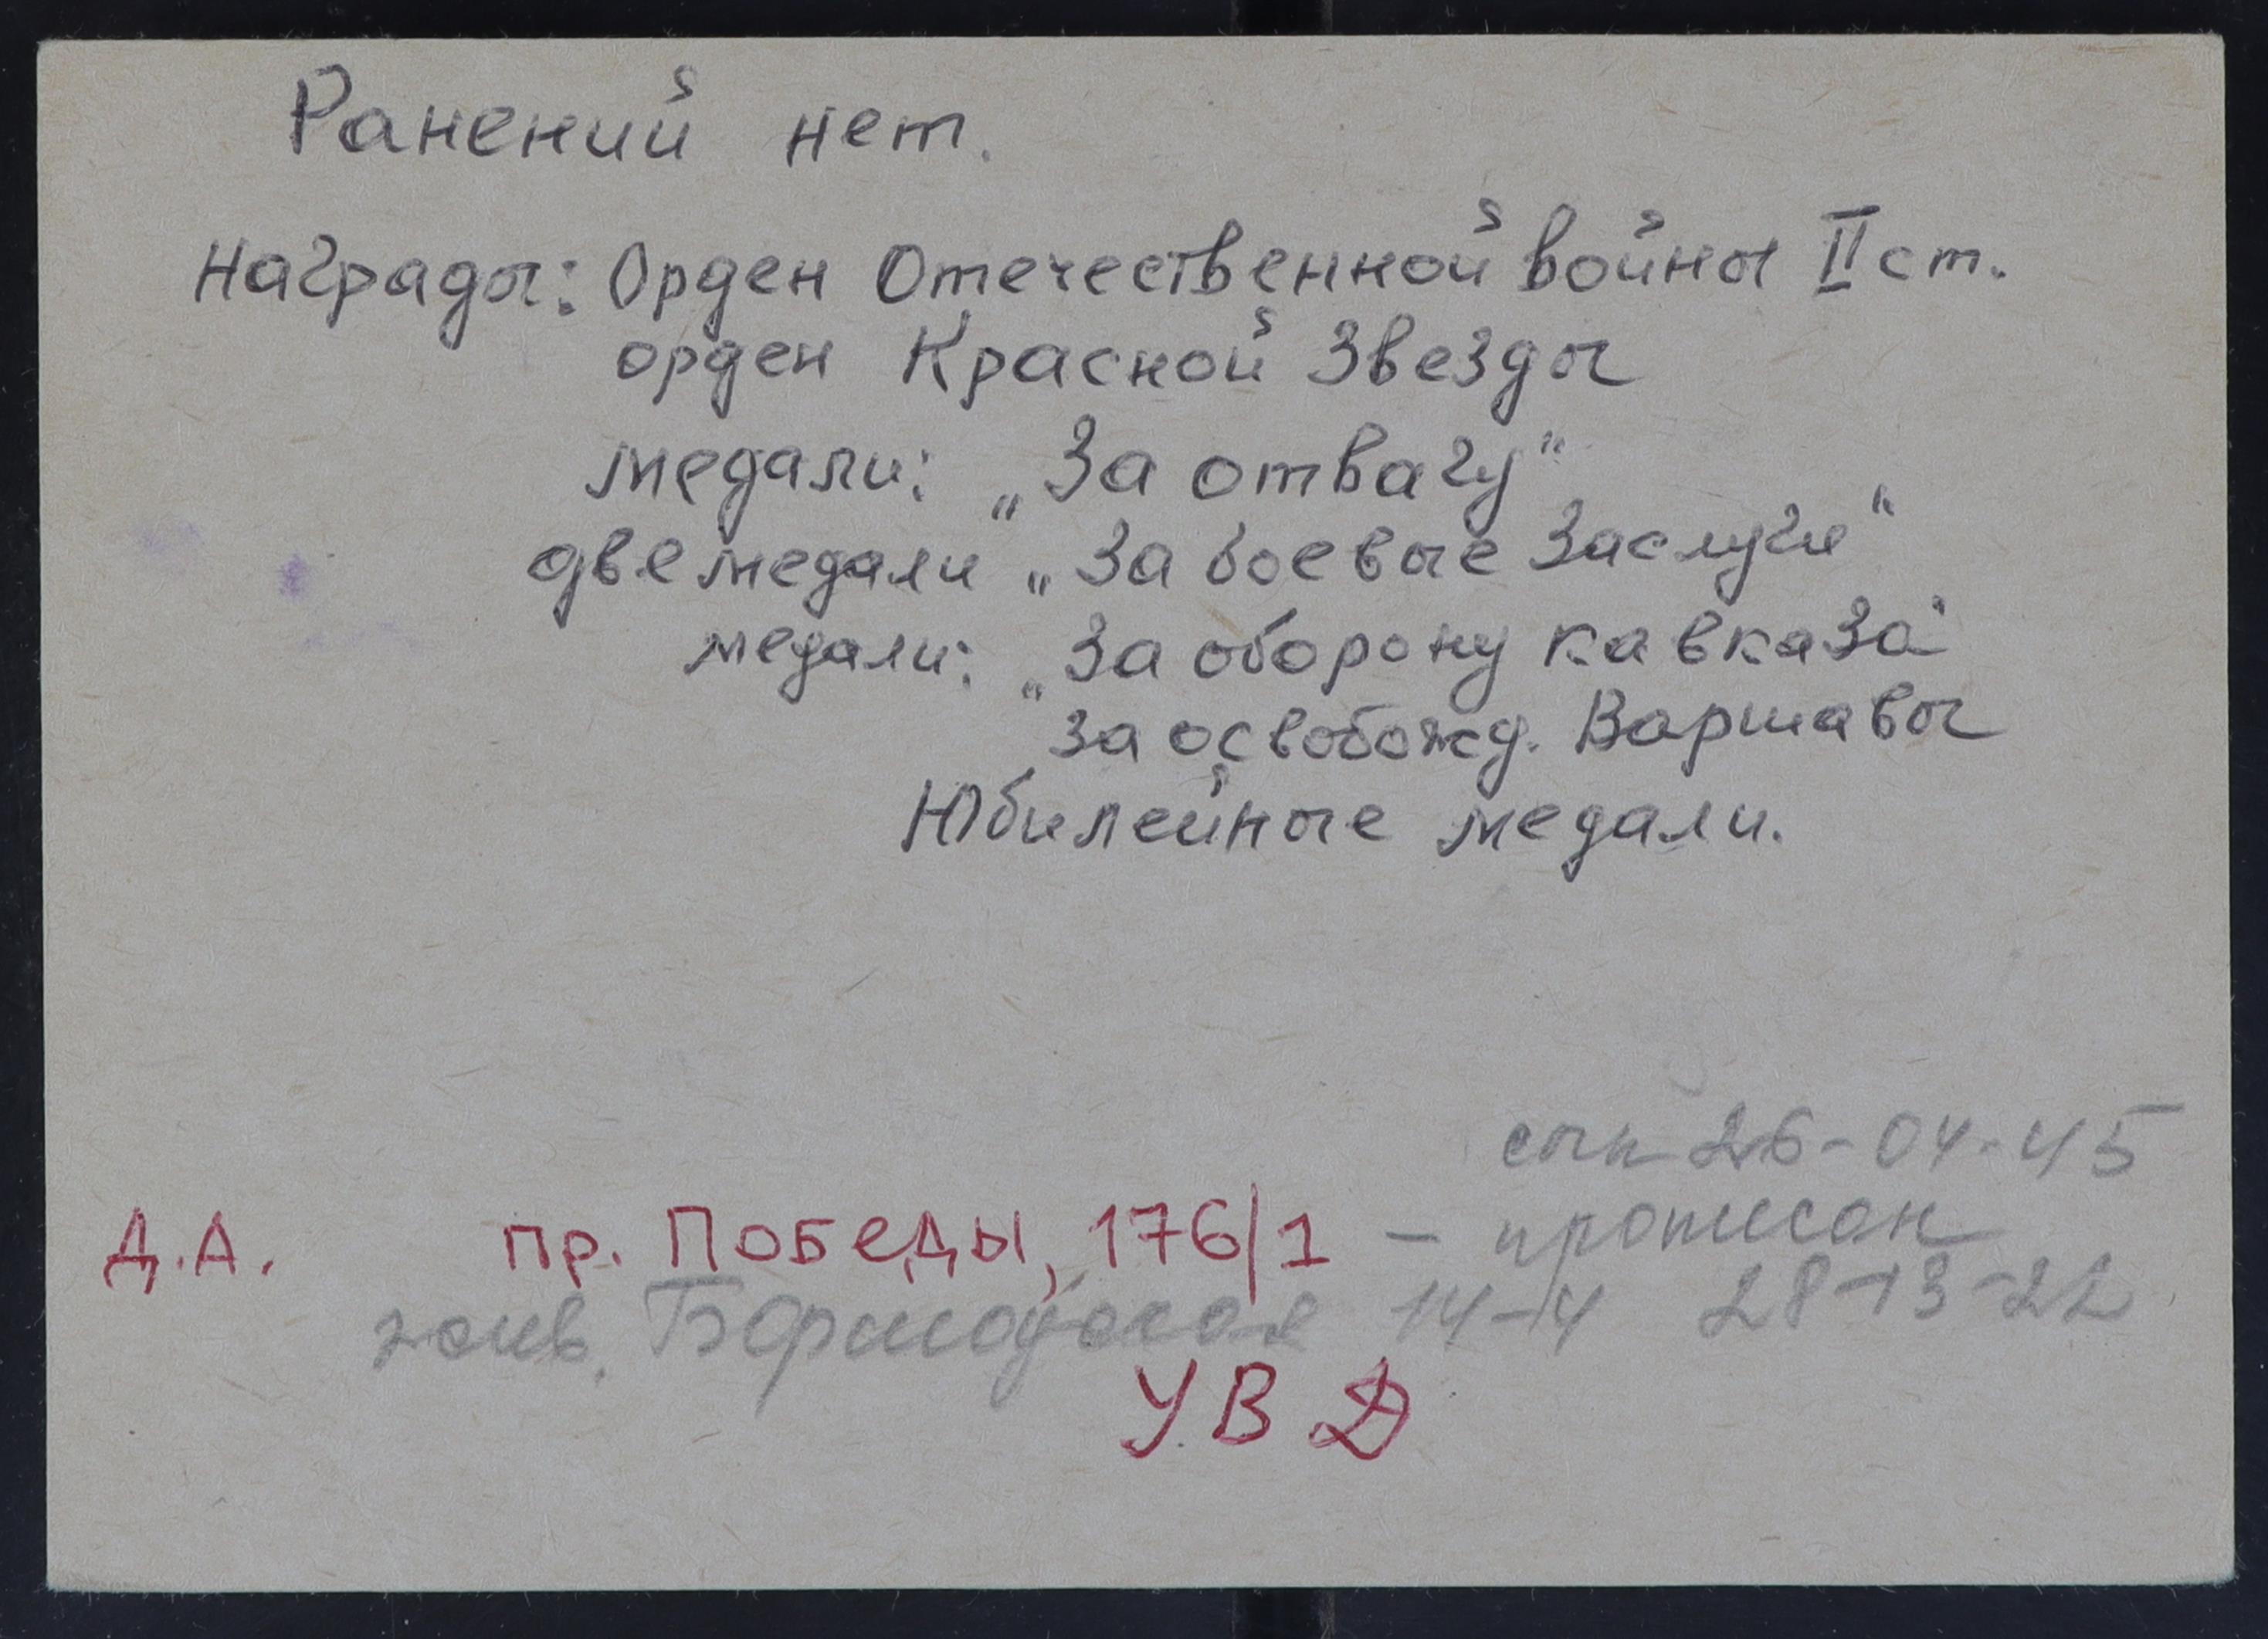 Ранений нет.
Награды: Орден Отечественной войны II ст.
орден Красной Звезды
медали: „За отвагу“
две медали „За боевые заслуги“
медали: „За оборону Кавказа“
„За освобожд. Варшавы
Юбилейные медали.
сын 26-04-45
Д.А. пр. Победы, 176/1 – прописан
жив. 14-4 28-13-22
УВД